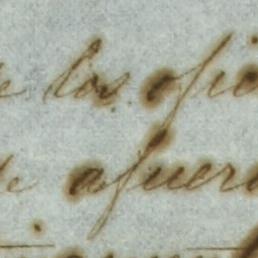 de los ofic
de afuera